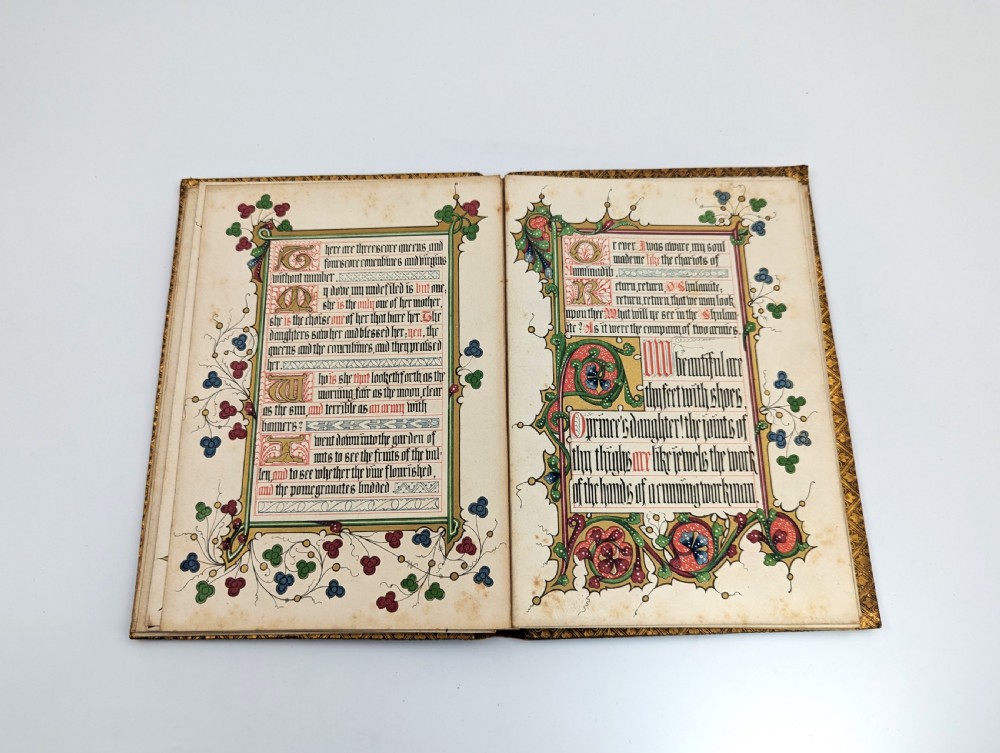 There are threescore queens, and
fourscore concubines and virgins
without number.
My dove my undefiled is but one,
she is the only one of her mother,
she is the choise one of her that bare her. The
daughters saw her and blessed her; yea, the
queens and the concubines, and they praised
her.
Who is she that looketh forth as the
morning, fair as the moon, clear
as the sun, and terrible as an army with
banners?
I went down into the garden of
nuts to see the fruits of the val-
ley, and to see whether the vine flourished,
and the pomegranates budded
Or ever I was aware, my soul
made me like the chariots of
Amminadib.
Return, return, O Shulamite,
return, return, that we may look
upon thee. What will ye see in the Shulam-
ite? As it were the company of two armies.
HOW beautiful are
thy feet with shoes
O prince's daughter! the joints of
thy thighs are like jewels the work
of the hands of a cunning workman.